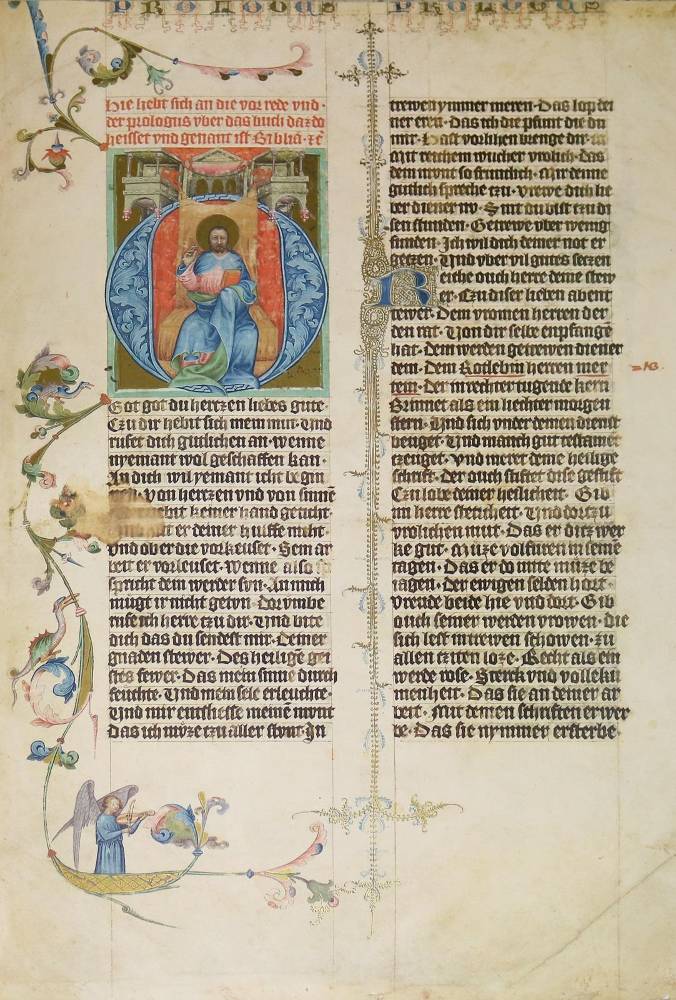 PROLOGUS PROLOGUS
Hie hebt sich an die vor rede vnd·
der prologus vber das buch daz do
heisset vnd genant ist Biblia·
Got got du hertzen liebes gute·
Czu dir hebit sich mein mut· Vnd
rufet dich gutlichen an· wenne
nyemant wol geschaffen kan·
An dich wil yemant icht begin
von hertzen vnd von sinne
keiner hand geticht·
er deiner hulffe nicht·
vnd ob er die vorkeuset· Sein ar
beit er vorleuset· Wenne also
spricht dem werder sun· An mich
mugt ir nicht getvn· Dorvmbe
rufe ich herre tzu dir· Vnd bite
dich das du sendest mir· Deiner
gnaden stewer· Des heilige gei
stes fewer· Das mein sinne durch
feuchte· Vnd mein sele erleuchte·
Vnd mir entslesse meine mvnt
das ich mvze tzu aller stvnt· In
trewen ymmer meren· Das lop dei
ner eren· Das ich die pfunt die du
mir· Hast vorlihen bringe dir·
Mit reichem wucher vrolich· Das
dein mvnt so fruntlich· Mir denne
gutlich spreche tzu· Vrewe dich lie
ber diener nv· Sint du bist tzu di
sen stunden· Getrewe vber wenig
funden· Ich wil dich deiner not er
getzen· Vnd vber vil gutes setzen
Reiche ouch herre deine stew
er· Czu diser lieben abent
tewer· Dem vromen herren der
den rat· Von dir selbe enpfange
hat· Dem werden getrewen diener
dein· Dem Rotlebin herren mer
tein· Der in rechter tugende kern
Brinnet als ein liechter morgen
stern· Vnd sich vnder deinen dienst
beuget· Vnd manch gut testamet
tzeuget· Vnd meret deine heilige
schrift· Der ouch stiftet dise gestift
Czu lobe deiner heilicheit· Gib
im herre steticheit· Vnd dortzu
vrolichen mut· Das er ditz wer
ke gut· Muze volfuren in seine
tagen· Das er do mite muze be
iagen· Der ewigen selden hort·
vreude beide hie vnd dort· Gib
ouch seiner werden vrowen· die
sich lest in trewen schowen· zu
allen tziten loze· Recht als ein
werde rose· Sterck vnd volleku
menheit· Das sie an deiner ar
beit· Mit deinen schriften erwer
be· Das sie nymmer ersterbe·